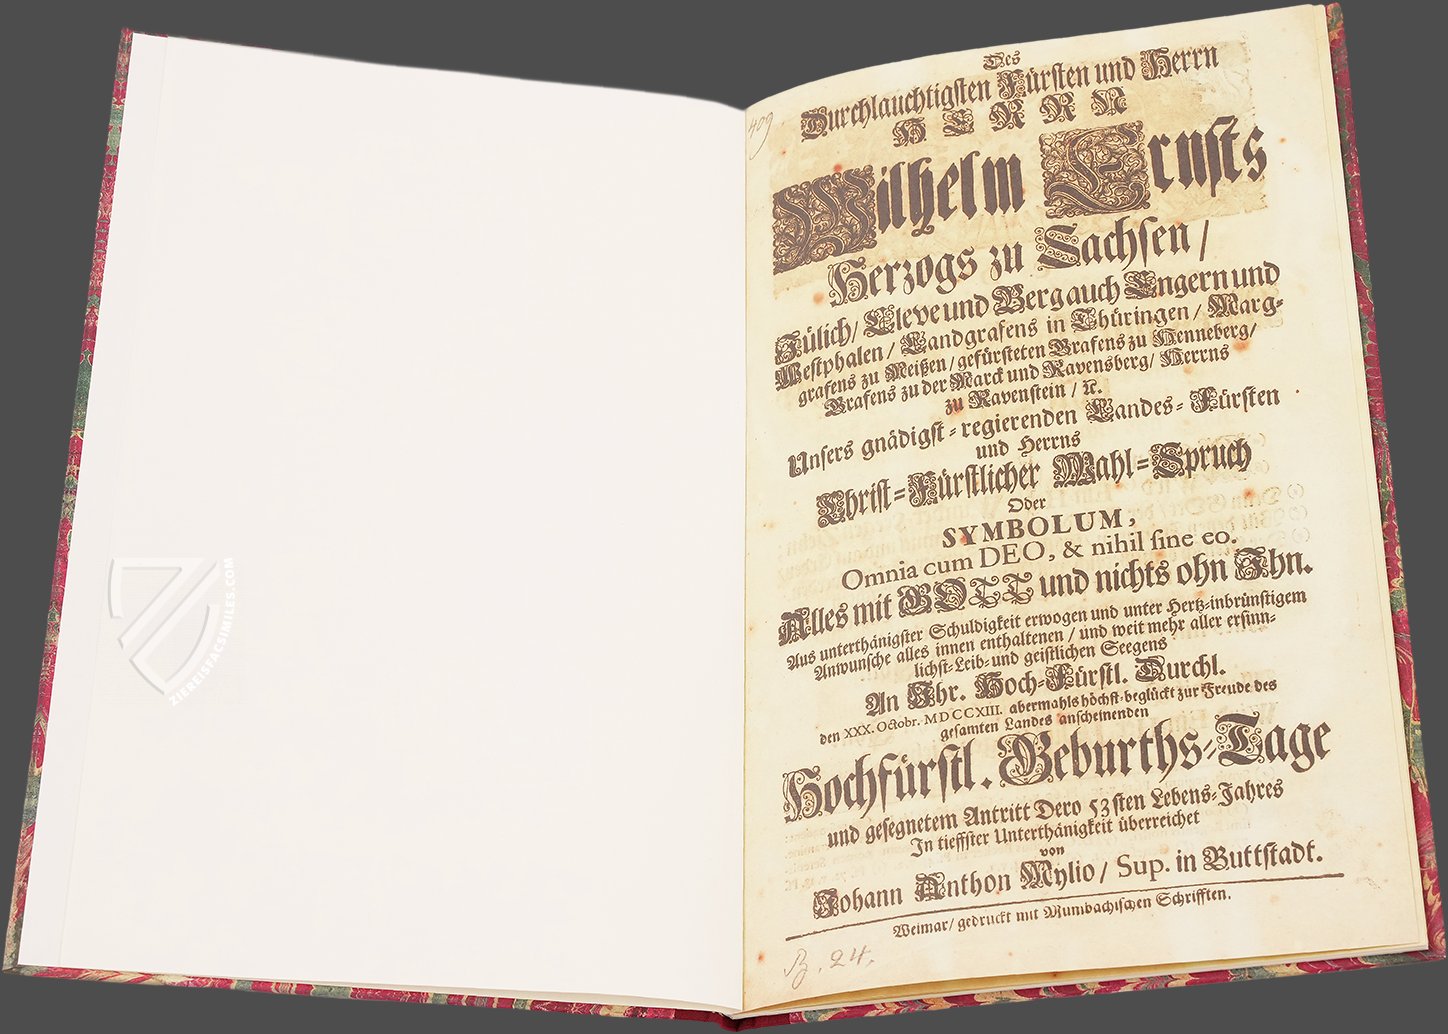 ZIEREISFACSIMILES.COM
409
Des
Durchlauchtigsten Fürsten und Herrn
HERRN
Wilhelm Ernsts
Herzogs zu Sachsen /
Jülich / Cleve und Berg auch Engern und
Westphalen / Landgrafens in Thüringen / Marg-
grafens zu Meißen / gefürsteten Grafens zu Henneberg /
Grafens zu der Marck und Ravensberg / Herrns
zu Ravenstein / ꝛc.
Unsers gnädigst-regierenden Landes-Fürsten
und Herrns
Christ-Fürstlicher Wahl-Spruch
Oder
SYMBOLUM,
Omnia cum DEO, & nihil sine eo.
Alles mit GOTT und nichts ohn Ihn.
Aus unterthänigster Schuldigkeit erwogen und unter Hertz-inbrünstigem
Anwunsche alles innen enthaltenen / und weit mehr aller ersinn-
lichst-Leib- und geistlichen Seegens
An Ihr. Hoch-Fürstl. Durchl.
den XXX. Octobr. MDCCXIII. abermahls höchst-beglückt zur Freude des
gesamten Landes anscheinenden
Hochfürstl. Geburths-Tage
und gesegnetem Antritt Dero 53sten Lebens-Jahres
In tieffster Unterthänigkeit überreichet
von
Johann Anthon Mylio / Sup. in Buttstadt.
Weimar / gedruckt mit Mumbachischen Schrifften.
B. 24.